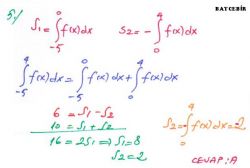 BAYCEBİR
5/ S₁ = ∫₋₅⁰ f(x)dx S₂ = -∫₀⁴ f(x)dx
∫₋₅⁴ f(x)dx = ∫₋₅⁰ f(x)dx + ∫₀⁴ f(x)dx
6 = S₁ - S₂
10 = S₁ + S₂
16 = 2S₁ ⇒ S₁ = 8
S₂ = 2
S₂ = ∫₀⁴ f(x)dx = 2
CEVAP: A